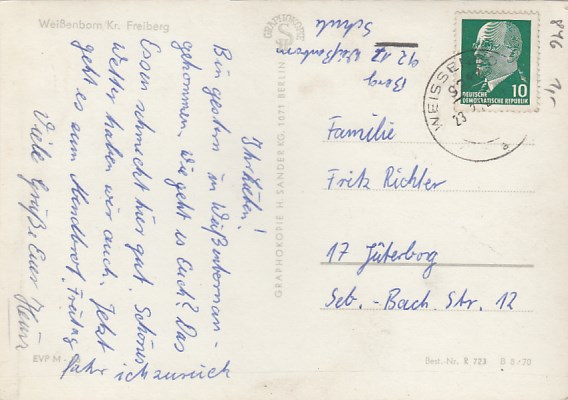 Weißenborn/Kr. Freiberg
Ihr Lieben!
Bin gestern in Weißenborn an-
gekommen. Wie geht es Euch? Das
Essen schmeckt hier gut. Schönes
Wetter haben wir auch. Jetzt
geht es zum Abendbrot. Freitag
fahr ich zurück
Viele Grüße Euer
EVP M
GRAPHOKOPIE
GRAPHOKOPIE H. SANDER KG, 1071 BERLIN
92 12 Weißenborn
Schule
WEISSEN
23
a
10
DEUTSCHE
DEMOKRATISCHE REPUBLIK
846
Familie
Fritz Richter
17 Jüterbog
Seb.-Bach. Str. 12
Best.-Nr. R 723 B 8/70